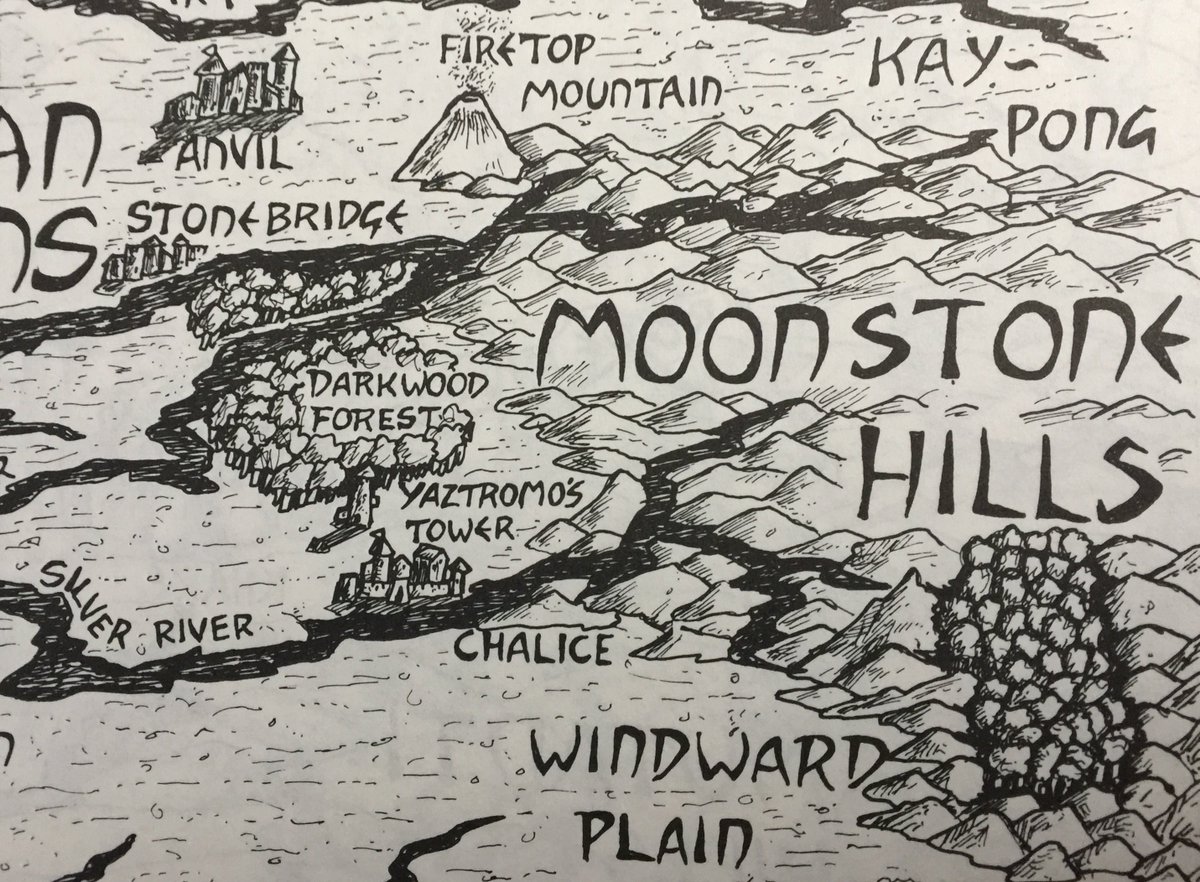 FIRETOP
MOUNTAIN
KAY-
PONG
ANVIL
STONEBRIDGE
MOONSTONE
HILLS
DARKWOOD
FOREST
YAZTROMO'S
TOWER
SILVER RIVER
CHALICE
WINDWARD
PLAIN